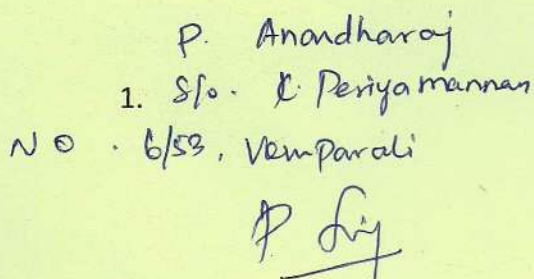 P. Anandharaj
1. S/o. K. Periyamannan
NO. 6/53, Vemparali